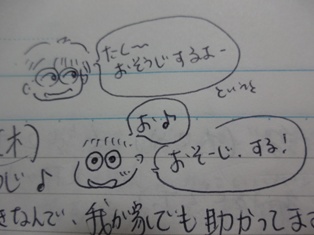 たく〜
おそうじするよー
というと
おっ♪
木)
おそーじ、する!
うじ♪
きなんで、我が家でも助かってます